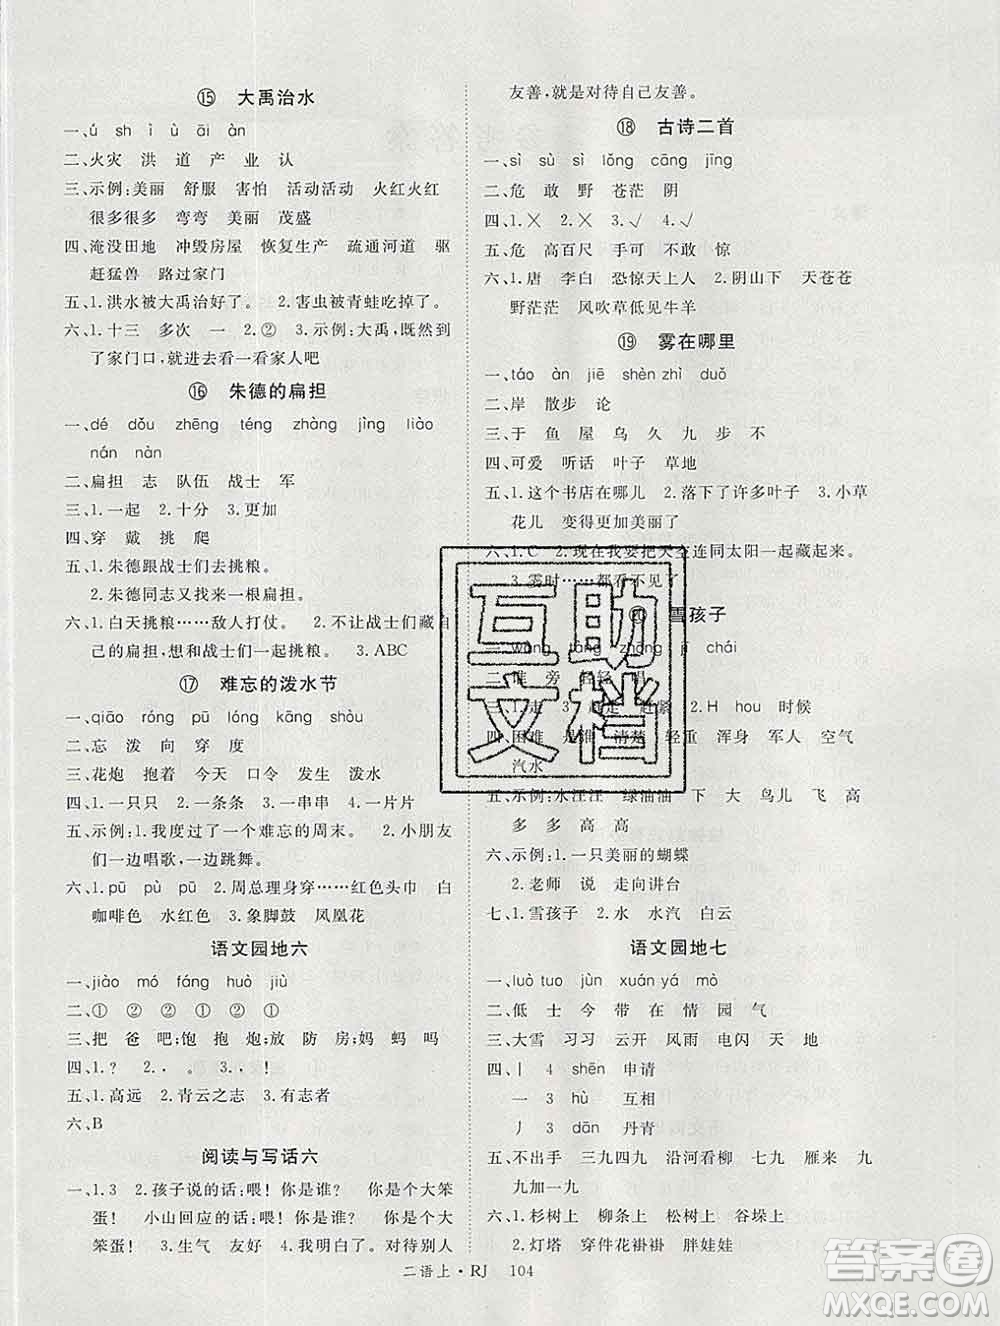 ⑮ 大禹治水
一、ú shì ì ù āi àn
二、火灾 洪 道 产 业 认
三、示例:美丽 舒服 害怕 活动活动 火红火红
很多很多 弯弯 美丽 茂盛
四、淹没田地 冲毁房屋 恢复生产 疏通河道 驱
赶猛兽 路过家门
五、1.洪水被大禹治好了。 2.害虫被青蛙吃掉了。
六、1.十三 多次 一 2.② 3.示例:大禹,既然到
了家门口,就进去看一看家人吧
⑯ 朱德的扁担
一、dé dǒu zhēng téng zhàng jìng liào
nán nàn
二、扁担 志 队伍 战士 军
三、1.一起 2.十分 3.更加
四、穿 戴 挑 爬
五、1.朱德跟战士们去挑粮。
2.朱德同志又找来一根扁担。
六、1.白天挑粮……敌人打仗。 2.不让战士们藏自
己的扁担,想和战士们一起挑粮。 3.ABC
⑰ 难忘的泼水节
一、qiāo róng pū lóng kāng shòu
二、忘 泼 向 穿 度
三、花炮 抱着 今天 口令 发生 泼水
四、1.一只只 2.一条条 3.一串串 4.一片片
五、示例:1.我度过了一个难忘的周末。 2.小朋友
们一边唱歌,一边跳舞。
六、1.pū pù pū 2.周总理身穿……红色头巾 白
咖啡色 水红色 3.象脚鼓 凤凰花
语文园地六
一、jiào mó fáng huò jiù
二、① ② ② ① ② ①
三、把 爸 吧;饱 抱 炮 放 防 房;妈 蚂 吗
四、1.? 2.,。 3.,!
五、1.高远 2.青云之志 3.有志者
六、B
阅读与写话六
一、1.3 2.孩子说的话;喂! 你是谁? 你是个大笨
蛋! 小山回应的话;喂! 你是谁? 你是个大
笨蛋! 3.生气 友好 4.我明白了。对待别人
友善,就是对待自己友善。
⑱ 古诗二首
一、sì sù sì lǒng cāng jīng
二、危 敢 野 苍茫 阴
四、1.× 2.× 3.√ 4.√
五、危 高百尺 手可 不敢 惊
六、1.唐 李白 恐惊天上人 2.阴山下 天苍苍
野茫茫 风吹草低见牛羊
⑲ 雾在哪里
一、táo àn jiē shèn zhì duǒ
二、岸 散步 论
三、于 鱼 屋 乌 久 九 步 不
四、可爱 听话 叶子 草地
五、1.这个书店在哪儿 2.落下了许多叶子 3.小草
花儿 变得更加美丽了
六、1.C 2.现在我要把天空连同太阳一起藏起来。
3.霎时……都看不见了
雪孩子
jǐ chái
旁 轻轻 唱
赶紧 2.H hou 时候
四、困难 是谁 清楚 轻重 浑身 军人 空气
汽水
五、示例:水汪汪 绿油油 下 大 鸟儿 飞 高
多 多 高 高
六、示例:1.一只美丽的蝴蝶
2.老师 说 走向讲台
七、1.雪孩子 2.水 水汽 白云
语文园地七
一、luò tuo jùn xuán yá mò
二、低 士 今 带 在 情 园 气
三、大雪 习习 云开 风雨 电闪 天 地
四、丨 4 shēn 申请
一 3 hù 互相
丿 3 dān 丹青
五、不出手 三九四九 沿河看柳 七九 雁来 九
九加一九
六、1.杉树上 柳条上 松树上 谷垛上
2.灯塔 穿件花褂褂 胖娃娃
二语上·RJ 104
互助
文档
答案圈
MXQE.COM